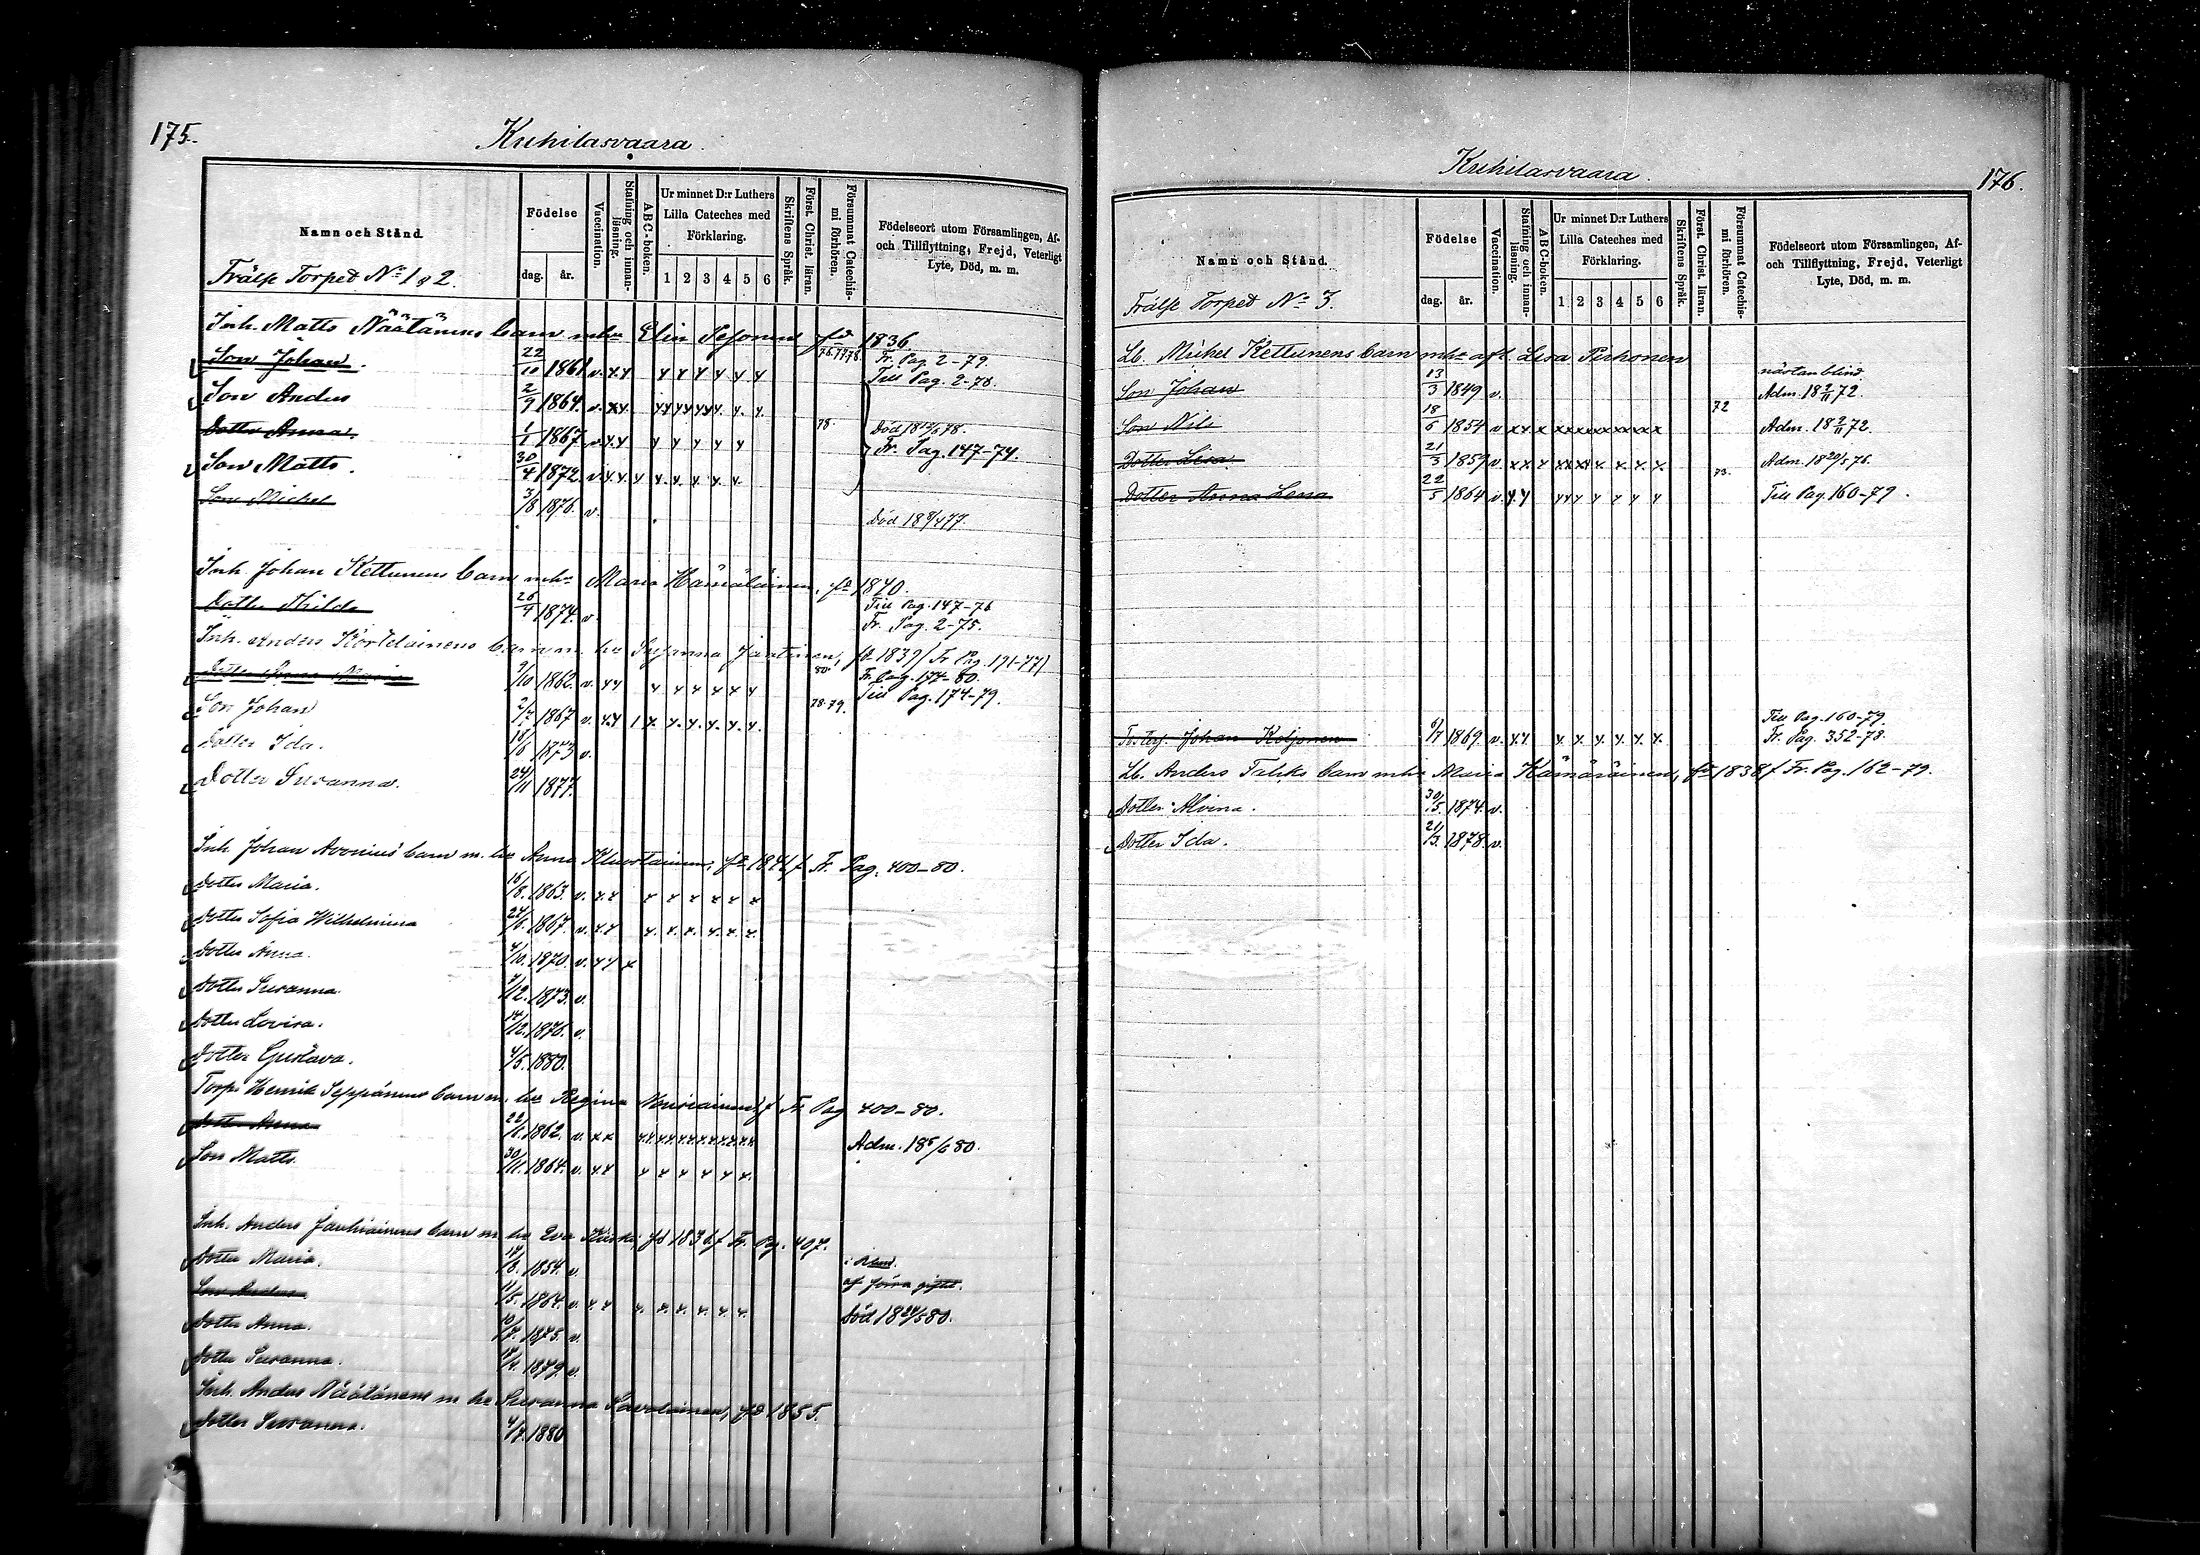 175.
Kuhilasvaara.
Namn och Stånd.
Födelse
dag.
år.
Vaccination.
Stafning och innanläsning.
ABC-boken.
Ur minnet D:r Luthers
Lilla Cateches med
Förklaring.
1 2 3 4 5 6
Skriftens Språk.
Först. Christ. läran.
Försummat Catechismi förhören.
Födelseort utom Församlingen, Af-
och Tillflyttning, Frejd, Veterligt
Lyte, Död, m. m.
Frälse Torpet No 1 & 2.
Inh. Matts Näätänens barn m. hu Elin Pesonen fd 1836
Son Johan. 22/10 1861 v. x x x x x x x x 76.77.78. Fr. Pag 2-79.
Till Pag. 2-78.
Son Anders 2/9 1864. v. x x
Dotter Anna. 1/1 1867 v. x x x x x x x 78. Död
Fr. Pag. 147-74.
Son Matts. 30/4 1872. v. x x x x x x x x
Son Michel 3/8 1876. v. Död 18 8/4 77.
Inh. Johan Kettunens barn m. hu Maria Hämäläinen, fd 1840.
Dotter Hilda 26/4 1874. v. Till Pag. 147-76
Fr. Pag. 2-75.
Inh. Anders Korteläinens barn m. hu Susanna Jäntunen, fd 1839 / Fr Pag. 191-77/
Dotter Anna Maria 9/10 1862. v. x x x x x x x x 80. Fr. Pag. 174-80.
Till Pag. 174-79.
Son Johan 2/7 1867 v. x x 1 x x x x x x 78-79.
Dotter Ida. 18/6 1873 v.
Dotter Susanna. 24/11 1877.
Inh. Johan Avonius barn m. hu Anna fd 1841 / Fr. Pag. 400-80.
Dotter Maria. 16/8. 1863. v. x x x x x x x x
Dotter Sofia Wilhelmina 24/6. 1867. v. x x x x x x x x
Dotter Anna. 4/10. 1870. v. x x x
Dotter Susanna. 7/12. 1873. v.
Dotter Lovisa. 14/12. 1876. v.
Dotter Gustava. 4/5. 1880.
Torp. Henrik Seppänens barn m. hu Regina Nousiainen / Fr. Pag 400-80.
Dotter Anna 22/ 1862. v. x x Adm. 18 80.
Son Matts. 30/11. 1864. v. x x x x x x x x
Inh. Anders Jauhiainens barn m. hu Eva fd 1836 / Fr. Pag. 407.
Dotter Maria. 1854. v.
af förra giftet.
Son Anders 1/5. 1864. v. x x x x x x x x Död 18 24/5 80.
Dotter Anna. 10/7. 1875. v.
Dotter Susanna. 1879. v.
Inh. Anders Näätänens m. hu Susanna Savolainen, fd 1855.
Dotter Susanna. 4/7. 1880
Kuhilasvaara.
176.
Namn och Stånd.
Födelse
dag.
år.
Vaccination.
Stafning och innanläsning.
ABC-boken.
Ur minnet D:r Luthers
Lilla Cateches med
Förklaring.
1 2 3 4 5 6
Skriftens Språk.
Först. Christ. läran.
Försummat Catechismi förhören.
Födelseort utom Församlingen, Af-
och Tillflyttning, Frejd, Veterligt
Lyte, Död, m. m.
Frälse Torpet No 3.
Lb. Michel Kettunens barn m. hu afl. Lisa Pirhonen
nästan blind
Son Johan 13/3 1849 v. Adm. 18 2/11 72.
Son Nils 18/6 1854 v x x x 72 Adm. 18 2/11 72.
Dotter Lisa. 21/3 1859 v. x x x 73. Adm. 18 20/5 76.
Dotter Anna Lena 22/5 1864 v. x x Till Pag. 160-79.
Till Pag. 160-79.
Fosters. Johan Koljonen 6/7 1869. v. x x. x x x x x x Fr. Pag. 352-78.
Lb. Anders Tahks barn m. hu Maria Hämäläinen, fd 1838 / Fr. Pag. 162-79.
Dotter Alvina. 30/5. 1874. v.
Dotter Ida. 21/3. 1878. v.